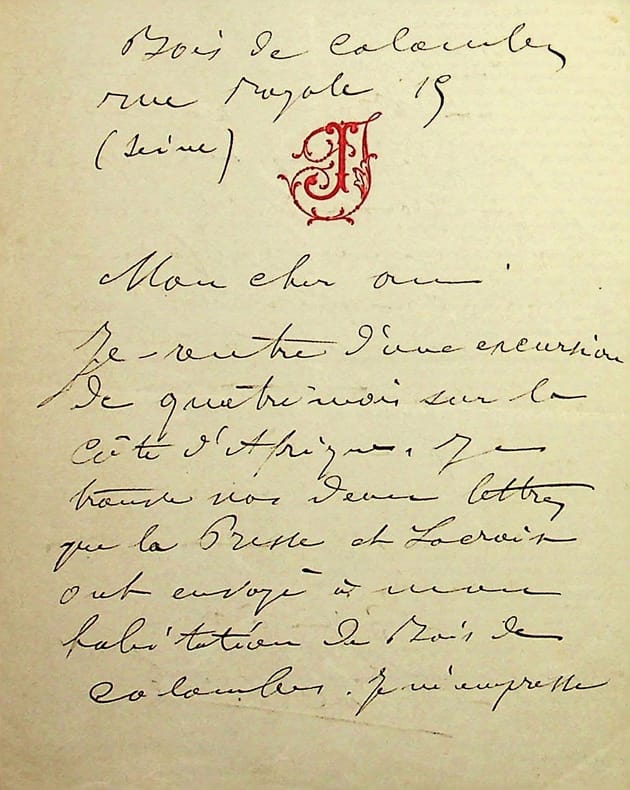 Bois de Colombes
rue Royale 19
(Seine)
Mon cher ami
Je rentre d'une excursion
de quatre mois sur la
Côte d'Afrique. Je
trouve vos deux lettres
que la Presse et Lacroix
ont envoyé à mon
habitation de Bois de
Colombes. Je m'empresse